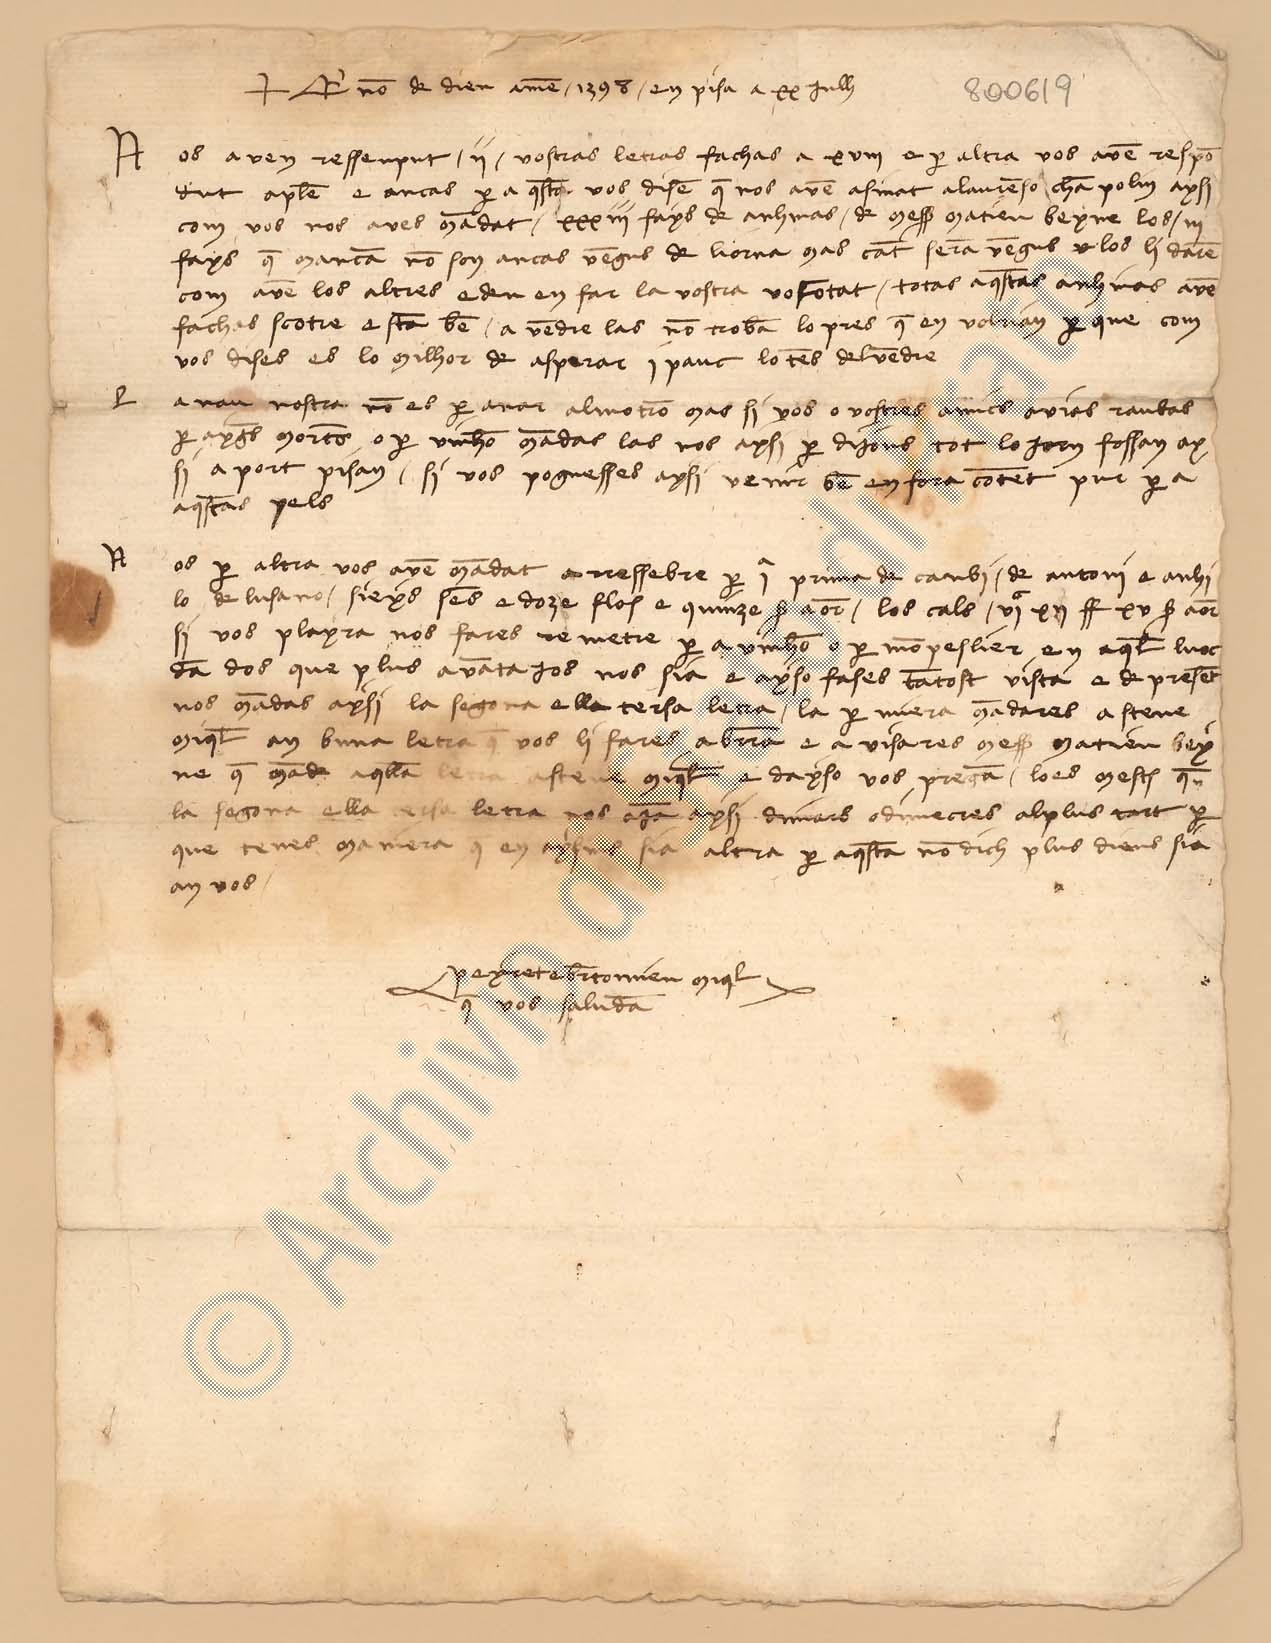 + Al no̅ de dieu ame̅ / 1398 / en pisa a xx julh
800619
N os aven ressenput / ii / vostras letras fachas a xviii e p̱ altra vos ave̅ respo̅
dut a ple̅ e ancas p̱ aq̅sta vos dise̅ q̅ nos ave̅ asinat a laure̅so cha̅polin aysi
com vos nos aves ma̅dat / xxxiiii fays de anhinas / de mess̅ matieu beyne los / iii
fays q̅ manca̅ no̅ son ancas ve̅gus de liorna mas ca̅t sera̅ ve̅gus los li dare̅
com ave̅ los altres e deu en far la vostra volontat / totas aq̅stas anhinas ave̅
fachas scotre e sta̅ be̅ / a ve̅dre las no̅ troba̅ lo pres q̅ en volrian p̱ que com
vos dises es lo milhor de asperar j pauc lo te̅s del ve̅dre
L a nau nostra no̅ es p̱ anar al motro̅ mas si vos o vostres amics avias raubas
p̱ ayg̅s morts o p̱ vinho̅ ma̅das las nos aysi p̱ dijous tot lo jorn fossan ay
si a port pisan / si vos poguesses aysi venir be̅ en fora co̅te̅t pur p̱ a
aq̅stas pels
N os p̱ altra vos ave̅ ma̅dat a ressebre p̱ i̅ prima de canbi / de antoni e anhi
lo de lusano / sieys se̅s e doze flos̅ e quinze s̅ a or̅ / los cals / vi xii ff xv s̅ aor̅
si vos playra nos fares remetre p̱ avinho̅ o p̱ mo̅peslier en aq̅l luoc
da̅ dos que plus ava̅tajos nos sia e ayso fases ta̅tost vista e de prese̅t
nos ma̅das aysi la segona e lla tersa letra / la p̱ miera ma̅dares a steve
miq̅l an buna letra q̅ vos li fares a br̅ra e avisares mess̅ matieu bey
ne q̅ ma̅de aq̅lla letra a steve miq̅l e dayso vos prega̅ / lo es mest̅ q̅
la segona e lla tersa letra nos aja̅ aysi dimars o dimecres al plus tart p̱
que tenes maniera q̅ en aysins sia altra p̱ aq̅sta no̅ dich plus dieus sia
an vos /
peyret e br̅tomieu miq̅l
q̅ vos saluda̅
© Archivio di Stato di Prato